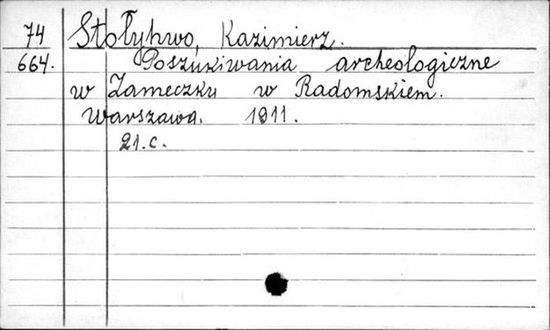 74 Stołyhwo, Kazimierz.
664. Poszukiwania archeologiczne
w Zameczku w Radomskiem.
Warszawa. 1911.
21.c.